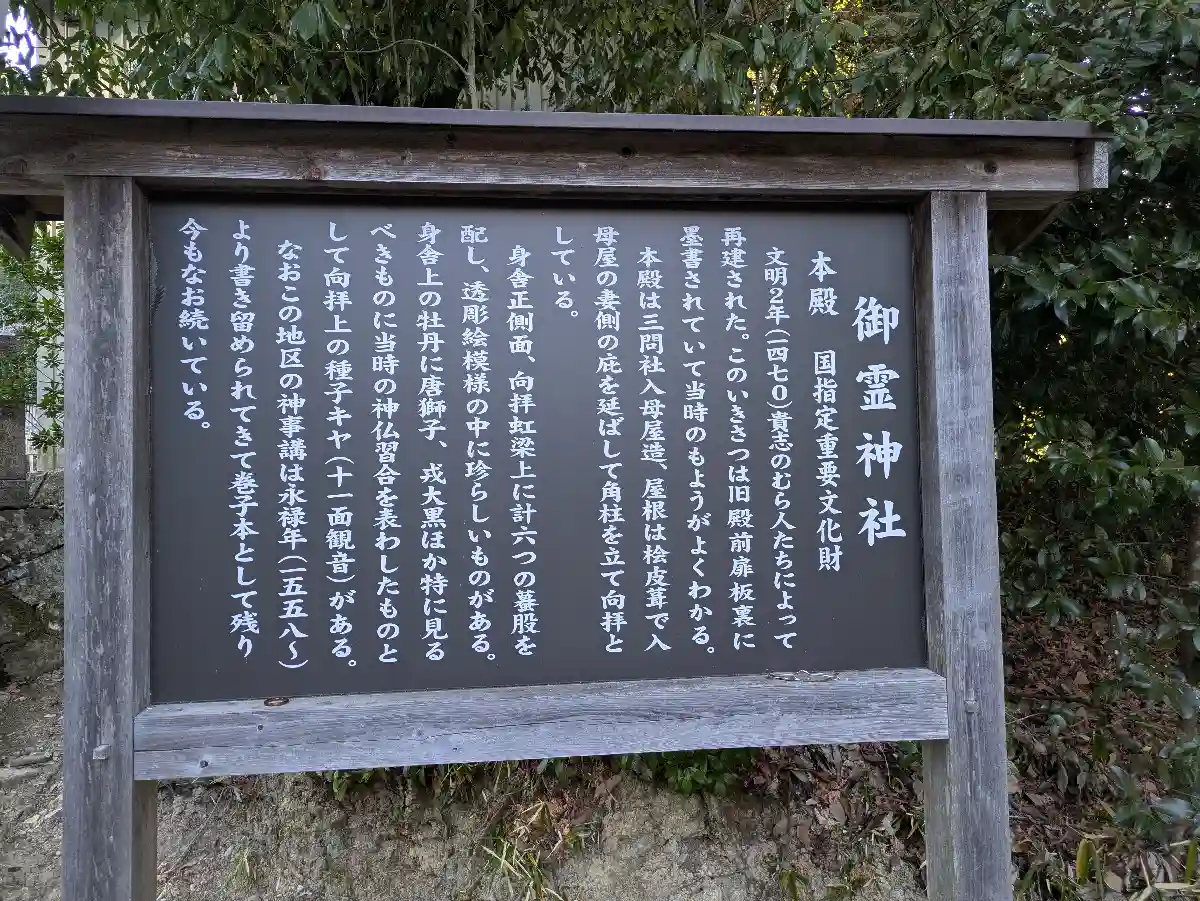 御霊神社
本殿 国指定重要文化財
文明2年(一四七〇)貴志のむら人たちによって
再建された。このいきさつは旧殿前扉板裏に
墨書されていて当時のもようがよくわかる。
本殿は三問社入母屋造、屋根は桧皮葺で入
母屋の妻側の庇を延ばして角柱を立て向拝と
している。
身舎正側面、向拝虹梁上に計六つの蟇股を
配し、透彫絵模様の中に珍らしいものがある。
身舎上の牡丹に唐獅子、戎大黒ほか特に見る
べきものに当時の神仏習合を表わしたものと
して向拝上の種子キヤ(十一面観音)がある。
なおこの地区の神事講は永禄年(一五五八〜)
より書き留められてきて巻子本として残り
今もなお続いている。